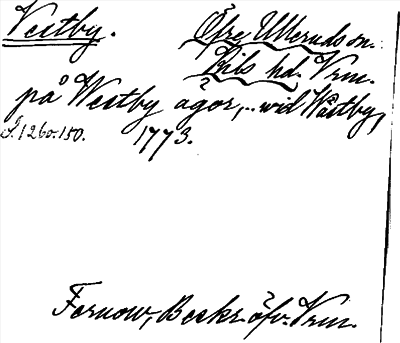 Vestby.
Öfre Ulleruds sn.
Kils hd. Vrm.
på Westby ägor,.. wid Wästby,
1260:150. 1773.
Fernow, Beskr. öfv. Vrm.